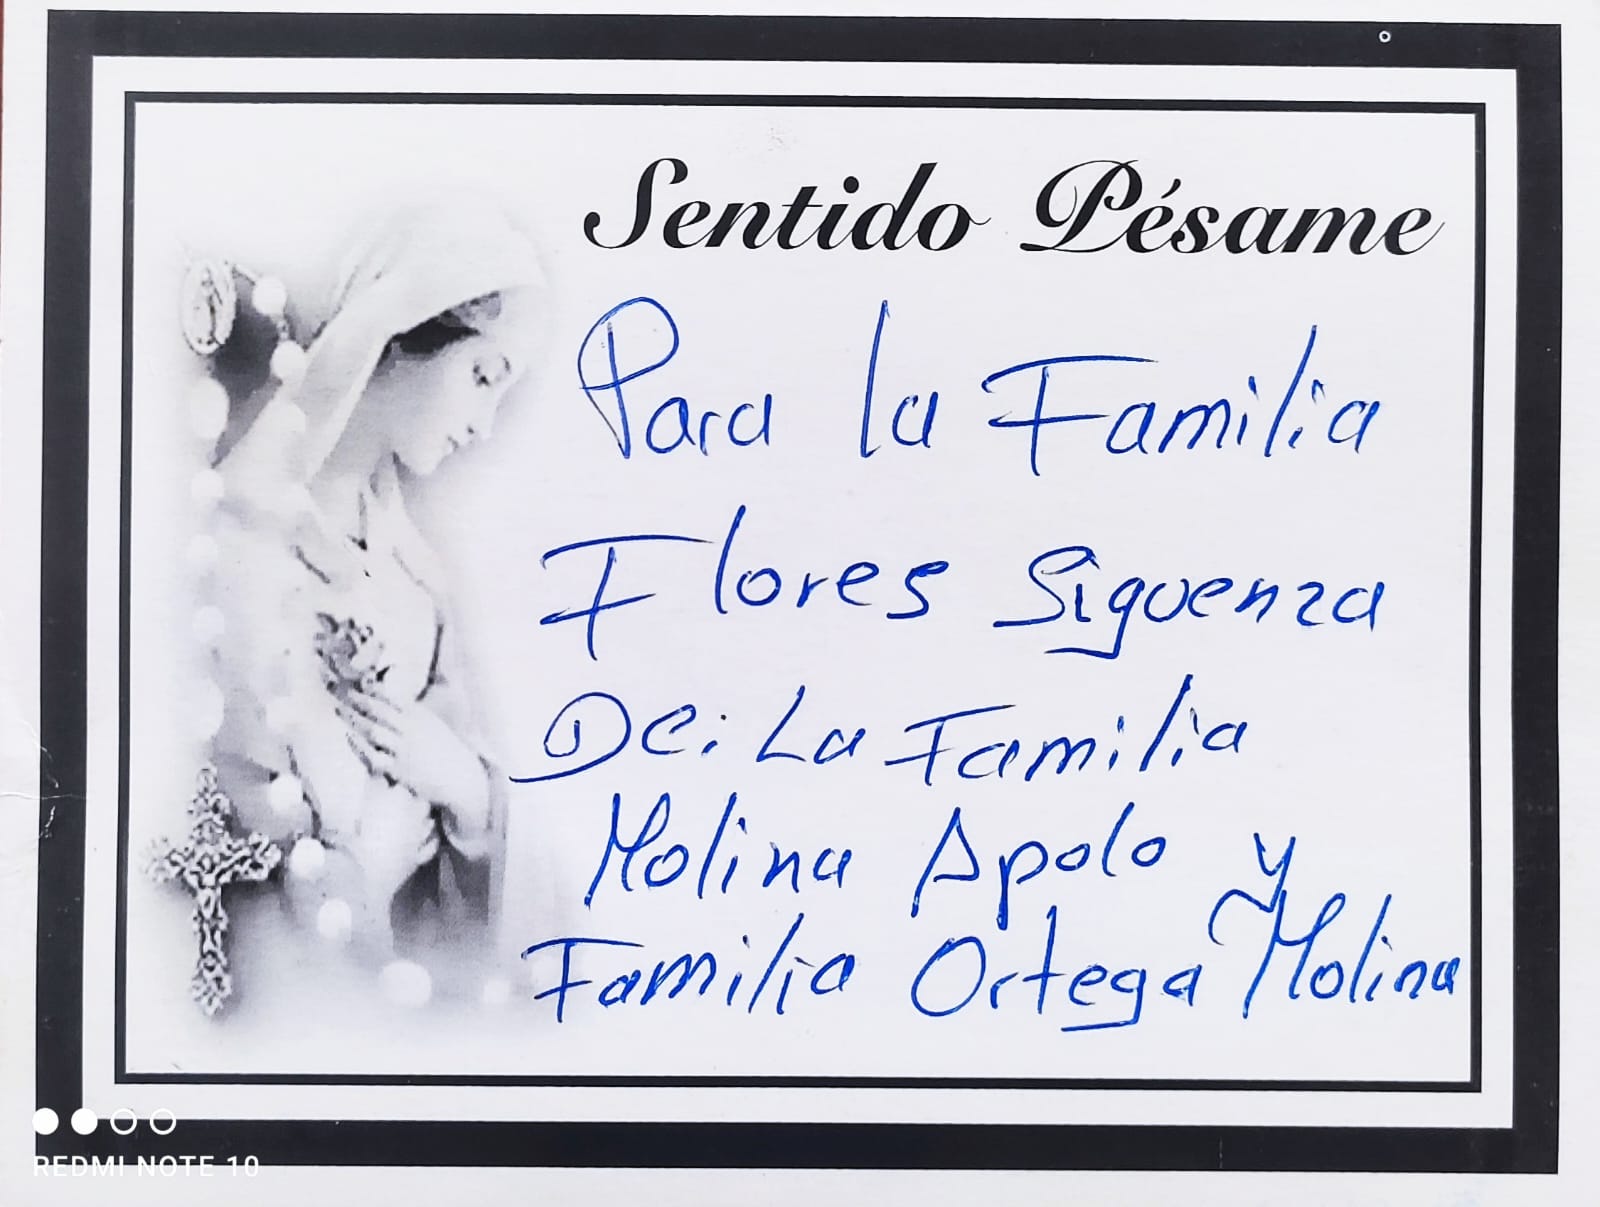 Sentido Pésame
Para la Familia
Flores Siguenza
De: La Familia
Molina Apolo y
Familia Ortega Molina
REDMI NOTE 10